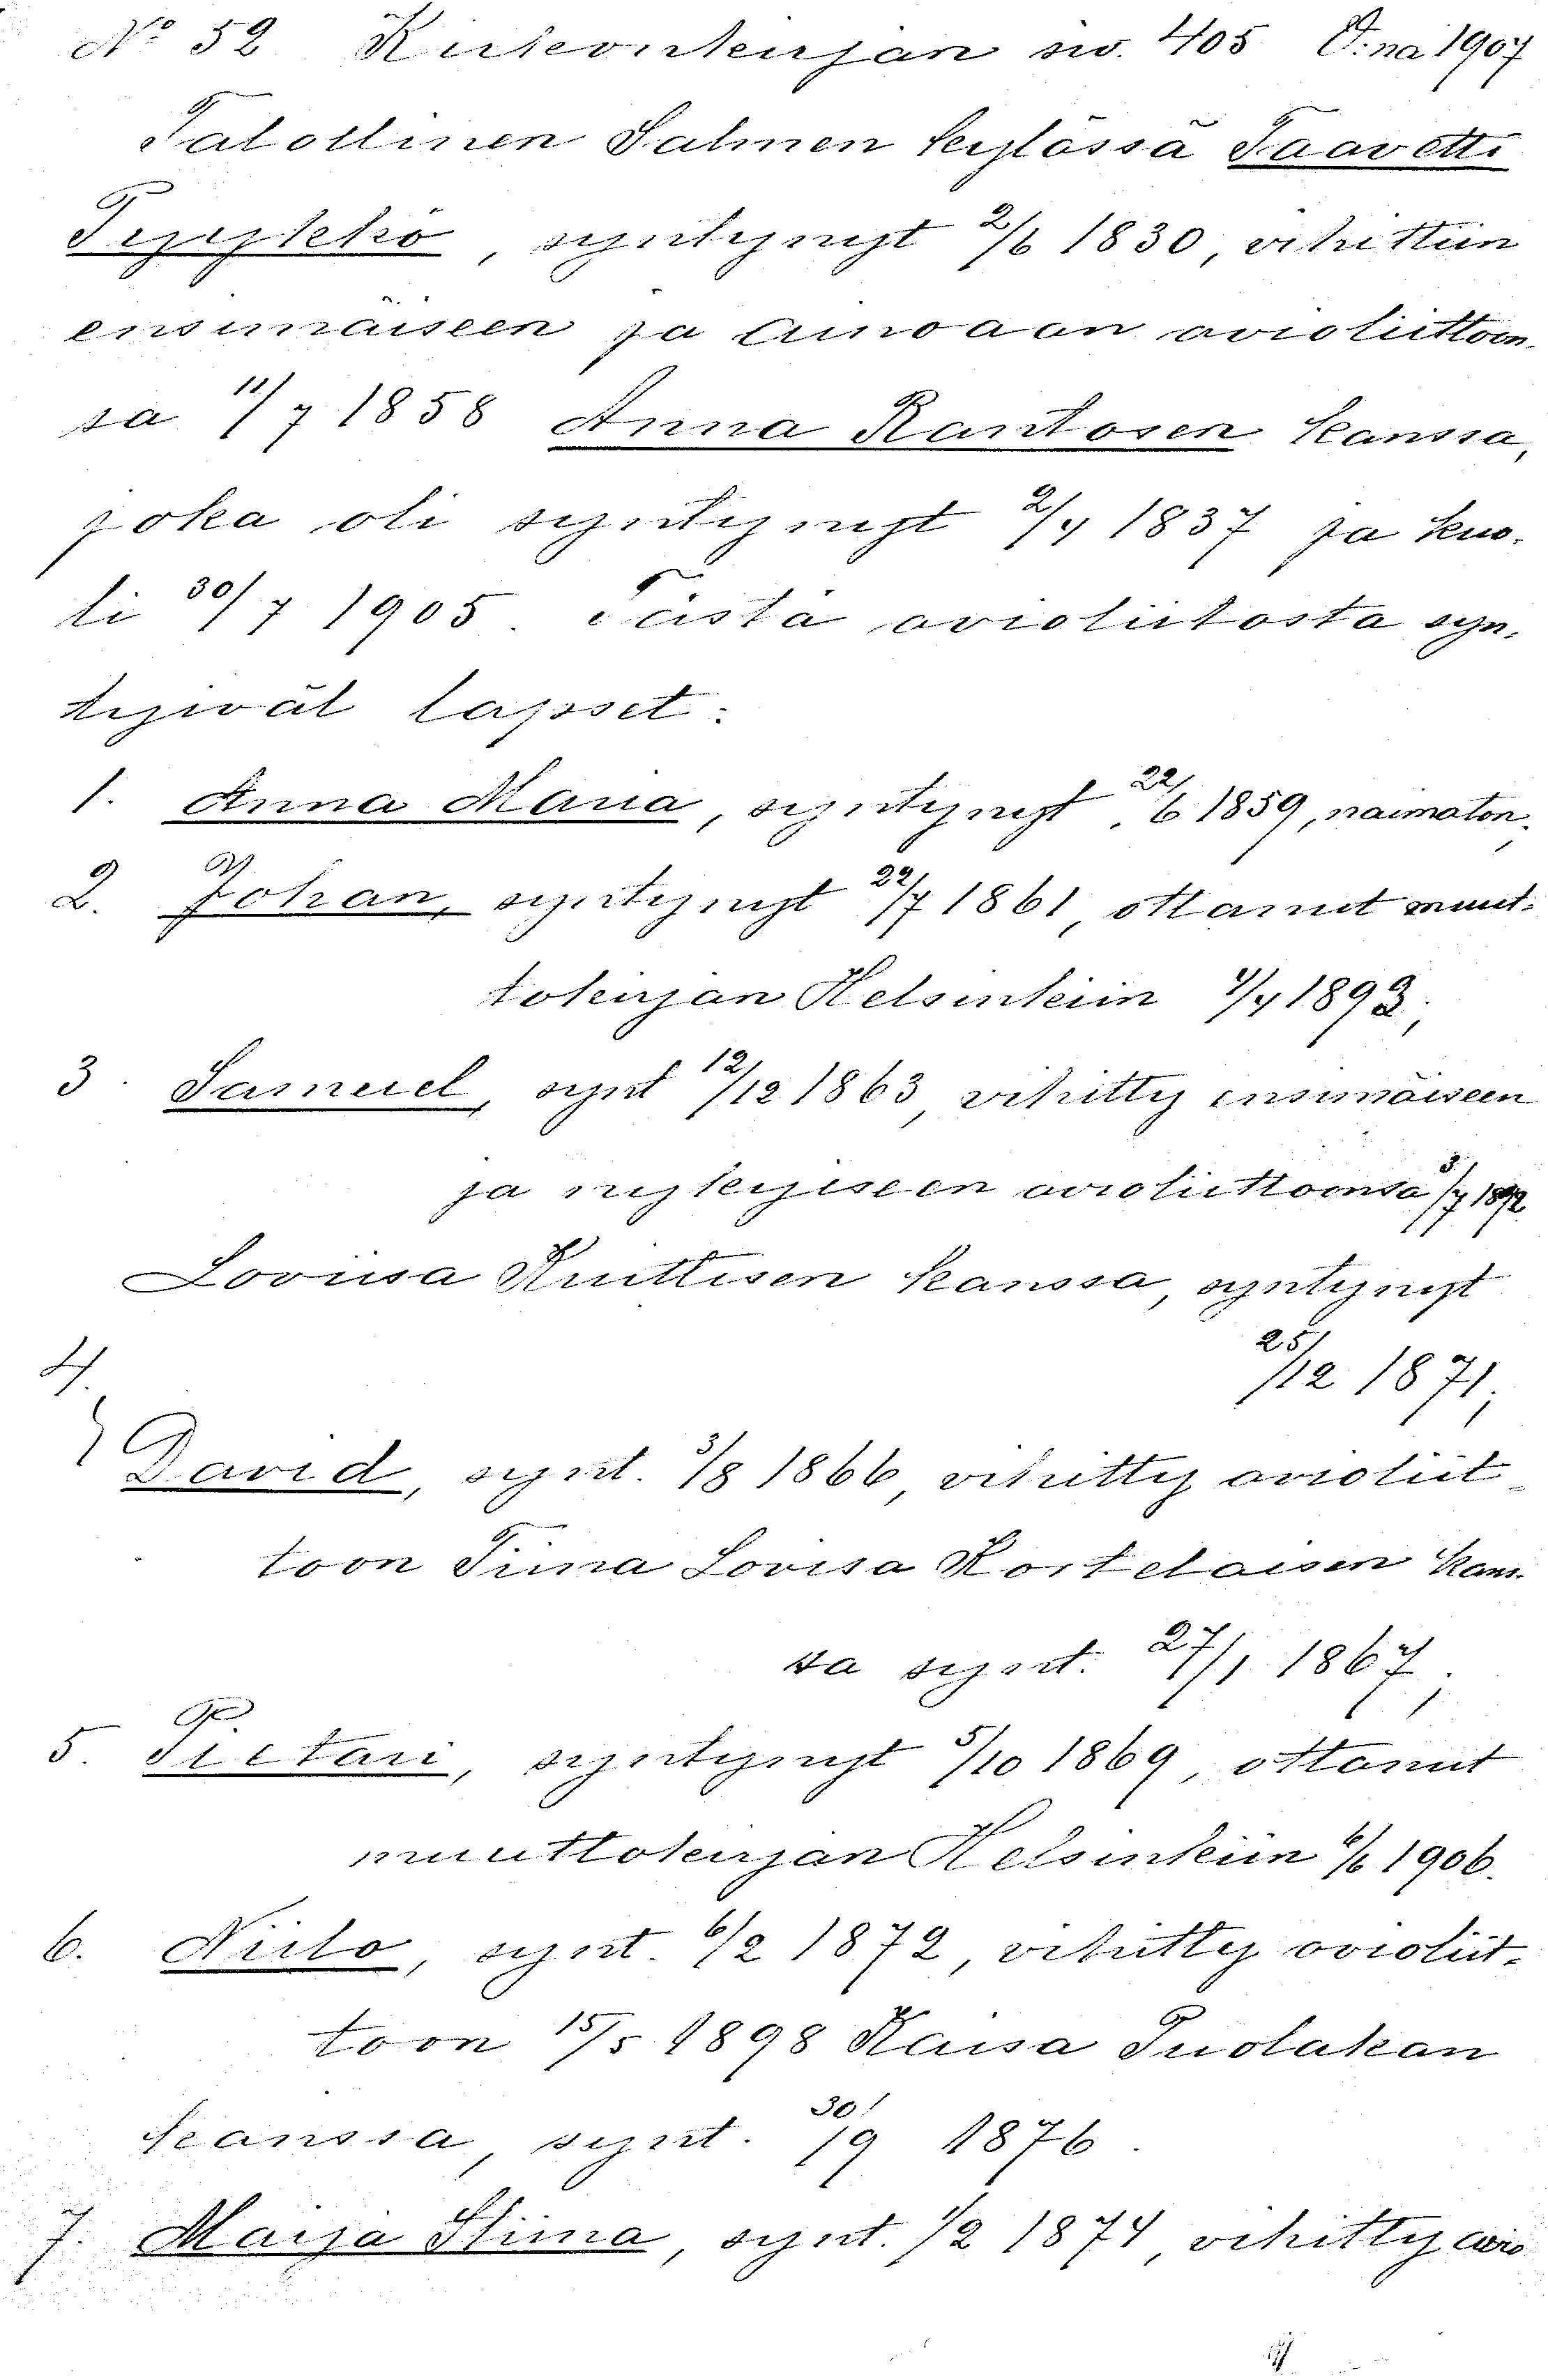 No 52 Kirkonkirjan siv. 405 V:na 1907
Talollinen Salmen kylässä Taavetti
Pyykkö, syntynyt 2/6 1830, vihittiin
ensimäiseen ja ainoaan avioliittoon-
sa 11/7 1858 Anna Rantosen kanssa,
joka oli syntynyt 2/4 1837 ja kuo-
li 30/7 1905. Tästä avioliitosta syn-
tyivät lapset:
1. Anna Maria, syntynyt 22/6 1859, naimaton;
2. Johan, syntynyt 22/7 1861, ottanut muut-
tokirjan Helsinkiin 4/4 1893;
3. Samuel, synt 12/12 1863, vihitty ensimäiseen
ja nykyiseen avioliittoonsa 3/7 1892
Loviisa Knuttisen kanssa, syntynyt
25/12 1871;
4.
David, synt. 3/8 1866, vihitty avioliit-
toon Tiina Lovisa Kortelaisen kans-
sa synt. 27/1 1867;
5. Pietari, syntynyt 5/10 1869, ottanut
muuttokirjan Helsinkiin 6/6 1906.
6. Niilo, synt. 6/2 1872, vihitty avioliit-
toon 15/5 1898 Kaisa Puolakan
kanssa, synt. 30/9 1876.
7. Maija Stiina, synt. 1/2 1874, vihitty avio